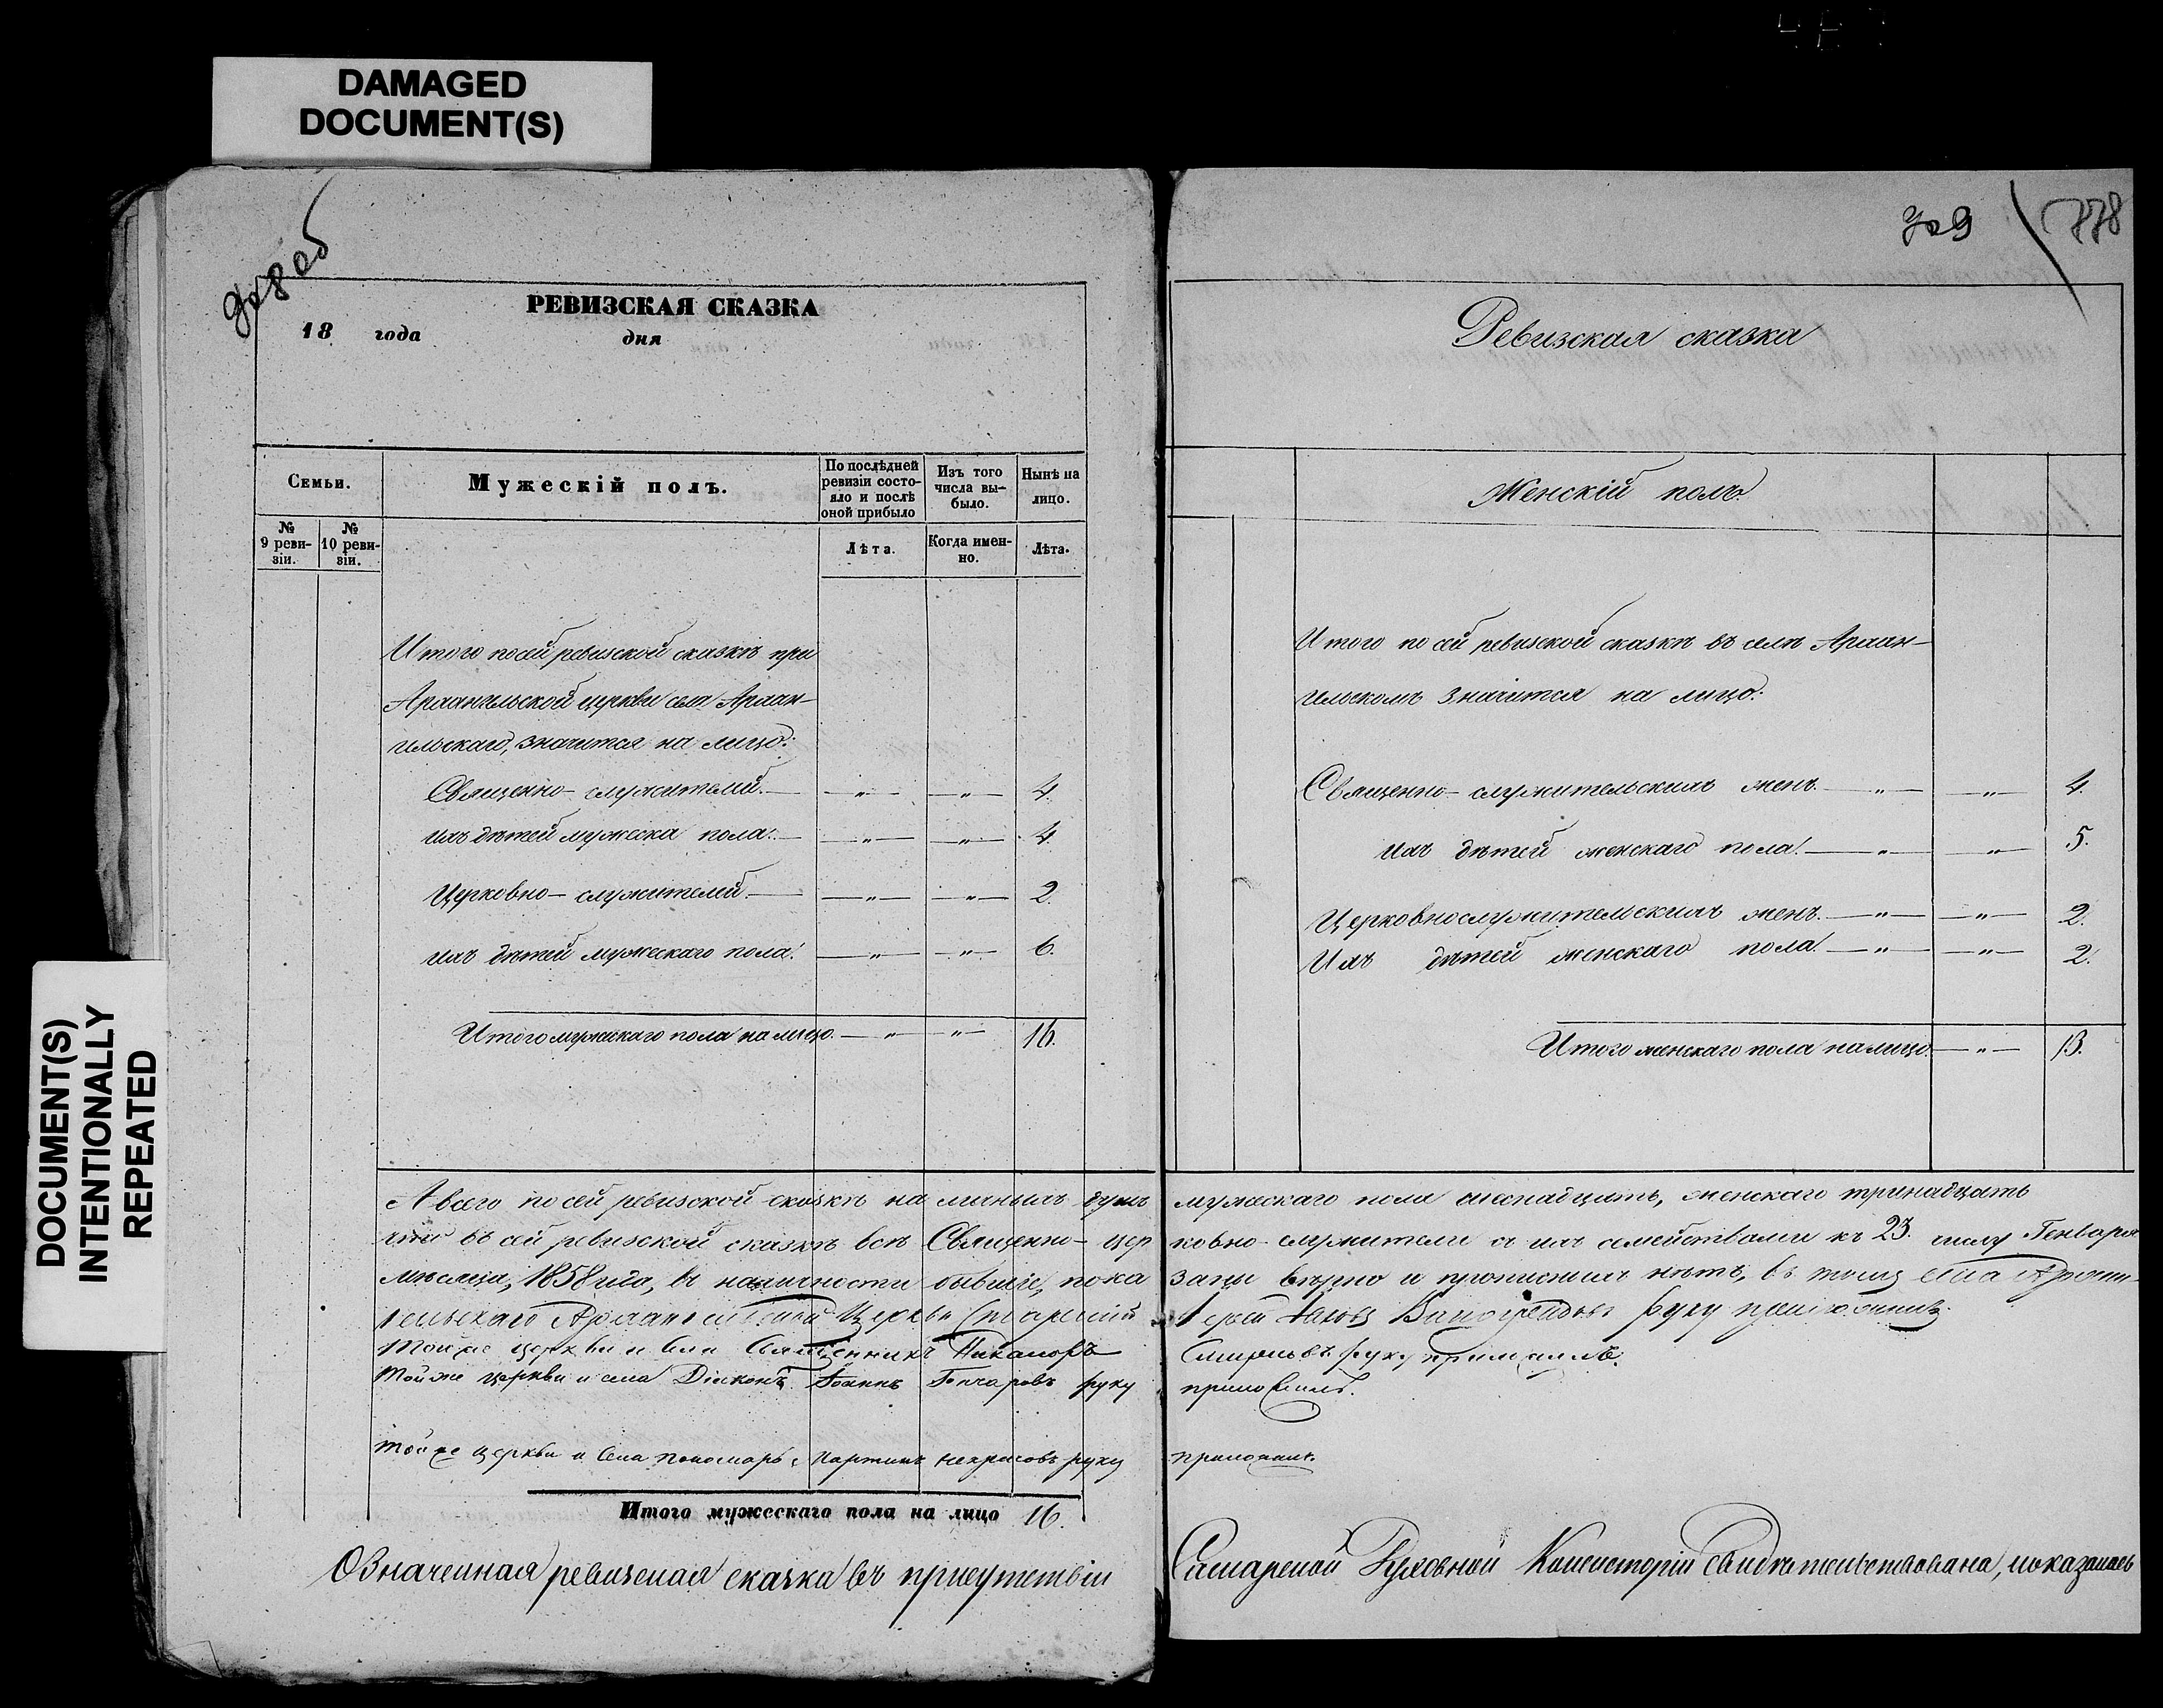 DAMAGED
DOCUMENT(S)
DOCUMENT(S)
INTENTIONALLY
REPEATED
РЕВИЗСКАЯ СКАЗКА
18 года дня
Семьи.
Мужескій полъ.
По послѣдней ревизіи состо-
яло и послѣ оной прибыло
Изъ того числа вы-
было.
Нынѣ на лицо.
№ 9 реви-
зіи.
№ 10 реви-
зіи.
Лѣта.
Когда имен-
но.
Лѣта.
Итого по сей ревизской сказкѣ при
Архангельской церкви села Архан-
гельскаго, значится на лицо:
Священно-служителей. — " — — " — 4.
ихъ дѣтей мужеска пола. — " — — " — 4.
Церковно-служителей — " — — " — 2.
ихъ дѣтей мужескаго пола. — " — — " — 6.
Итого мужескаго пола на лицо. — " — " — 16.
А всего по сей ревизской сказкѣ на личныхъ душъ
въ сей ревизской сказкѣ всѣ Священно- цер
мѣсяца, 1858 года, въ наличности бывшіе, пока
Церкви
Той же церкви и села Священникъ Никаноръ
Той же церкви и села Діаконъ Іоаннъ Гончаровъ руку
Той же церкви и села пономарь Мартинъ Некрасовъ руку
Итого мужескаго пола на лицо 16.
Означенная ревизская сказка въ присутствіи
709
778
Ревизская сказка
Женскій полъ
Итого по сей ревизской сказкѣ въ селѣ Архан-
гельскомъ значится на лицо:
Священно-служительскихъ женъ. — " — — " — 4.
ихъ дѣтей женскаго пола. — " — " — 5.
Церковнослужительскихъ женъ. — " — — " — 2.
Ихъ дѣтей женскаго пола. — " — — " — 2.
Итого женскаго пола на лицо. — " — 13.
мужескаго пола шеснадцать, женскаго тринадцать
ковно-служители съ ихъ семействами къ 23. числу Генваря
заны вѣрно и прописныхъ нѣтъ, въ томъ села
руку приложилъ.
Смирновъ руку приложилъ.
приложилъ.
приложилъ.
Самарской Духовной Консисторіи свидѣтельствована, показалась